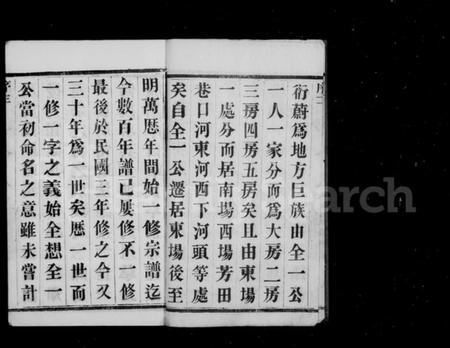 序二
衍蔚爲地方巨族由全一公
一人一家分而爲大房二房
三房四房五房矣且由東場
一處分而居南場西場芳田
巷口河東河西下河頭等處
矣自全一公遷居東場後至
明萬歷年間始一修宗譜迄
今數百年譜已屢修不一修
最後於民國三年修之今又
三十年爲一世矣歷一世而
一修一字之義始全想全一
公當初命名之意雖未嘗計
序三